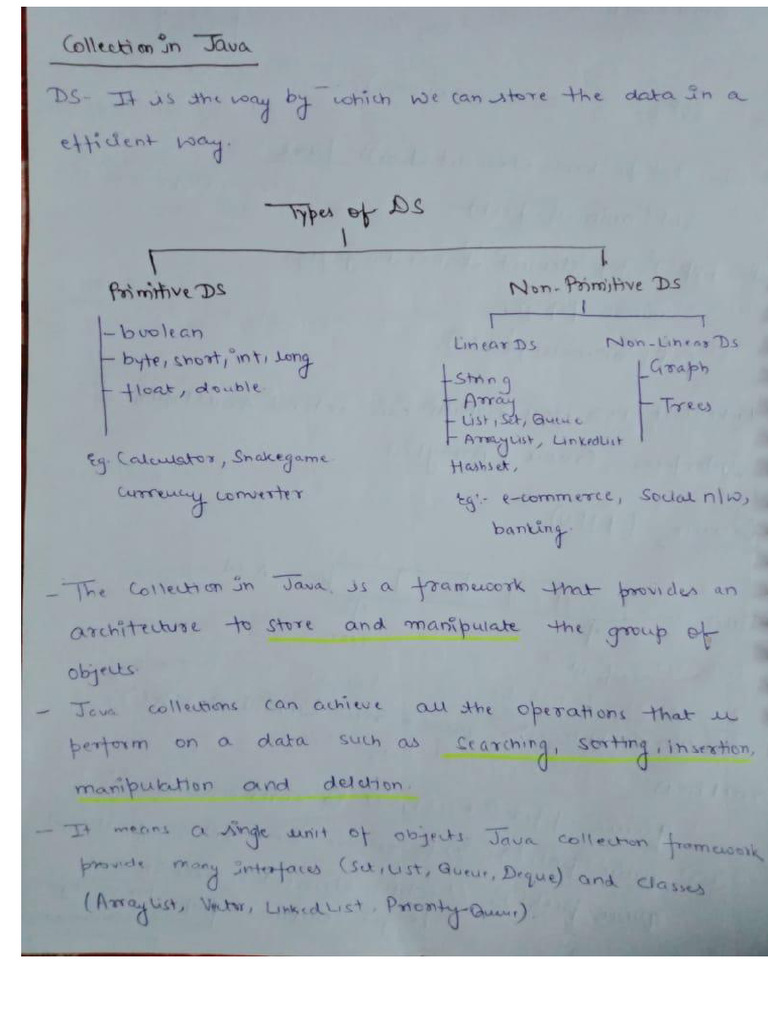 Collection in Java
DS- It is the way by which we can store the data in a
efficient way.
Types of DS
Primitive DS
Non-Primitive DS
- boolean
- byte, short, int, long
- float, double
Linear DS
Non-Linear DS
- String
- Array
- List, Set, Queue
- ArrayList, LinkedList
Hashset,
- Graph
- Trees
Eg. Calculator, Snakegame
currency converter
Eg:- e-commerce, Social n/w,
banking.
- The Collection in Java is a framework that provides an
architecture to store and manipulate the group of
objects.
- Java collections can achieve all the operations that u
perform on a data such as searching, sorting, insertion,
manipulation and deletion.
- It means a single unit of objects Java collection framework
provide many interfaces (Set, List, Queue, Deque) and classes
(ArrayList, Vector, LinkedList, Priority-Queue)